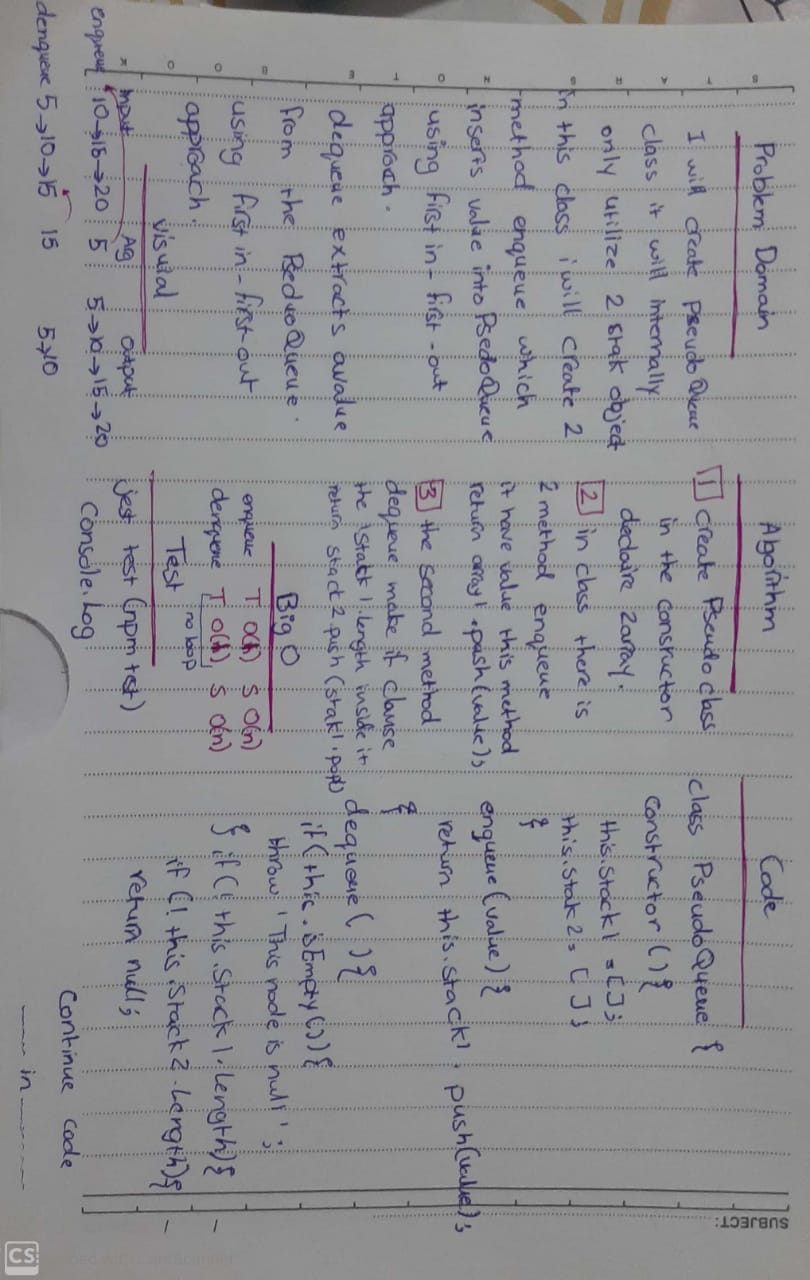 SUBJECT:
Problem Domain
I will create Pseudo Queue
class it will internally
only utilize 2 stak object
in this class i will create 2
method enqueue which
inserts value into PsedoQueue
using first in-first-out
approach.
dequeue extracts avalue
from the PseduoQueue.
using first in-first-out
approach.
visuial
input Ag output
enqueue 10→15→20 5 5→10→15→20
denqueue 5→10→15 15 5→10
Algorithm
1 create Pseudo class
in the constuctor
declaire 2array.
2 in class there is
2 method enqueue
it have value this method
return array1.push(value);
3 the second method
dequeue make if clause
the stakt 1.length inside it
return stact 2.push (stak1.pop())
Big O
enqueue T O(1) S O(n)
denqueue T O(1) S O(n)
no loop
Test
jest test (npm test)
Console.log
Code
class PseudoQueue {
Constructor () {
this.stack1 = [];
this.stak 2 = [];
}
enqueue (value) {
return this.stack1.push(value);
}
dequeue ( ) {
if (this.isEmpty()) {
throw 'This node is null';
} if (!this.Stack1.length) {
if (!this.Stack2.length) {
return null;
Continue code
in
CS